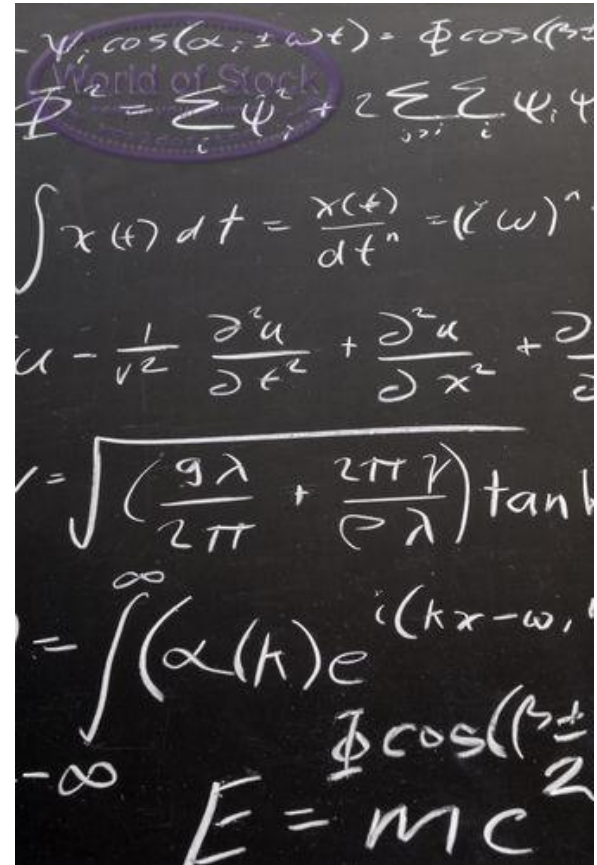 - Ψᵢ cos(αᵢ ± ωt) = Φ cos(β ±
World of Stock
Φ² = Σᵢ Ψᵢ² + 2 Σⱼ>ᵢ Σᵢ Ψᵢ Ψ
∫ x(t) dt = x(t)/dtⁿ = (iω)ⁿ
u - 1/v² ∂²u/∂t² + ∂²u/∂x² + ∂
= √(gλ/2π + 2πγ/ρλ) tan
= ∫_{-∞}^{∞} (α(k)e^{i(kx-ω,
Φ cos(β ±
E = mc²